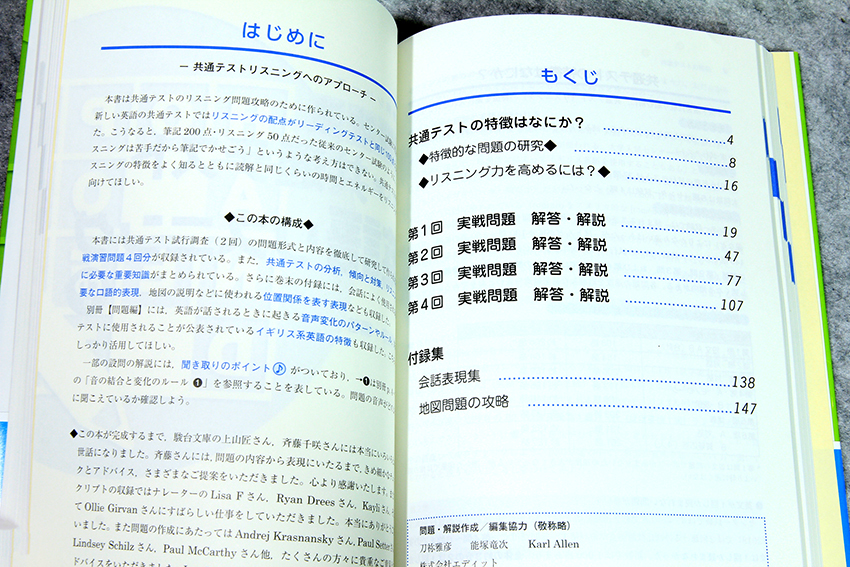 はじめに
− 共通テストリスニングへのアプローチ −
本書は共通テストのリスニング問題攻略のために作られている。センター試験
新しい英語の共通テストではリスニングの配点がリーディングテストと同じ
た。こうなると、筆記200点・リスニング50点だった従来のセンター試験のよ
スニングは苦手だから筆記でかせごう」というような考え方はできない。共通テ
スニングの特徴をよく知るとともに読解と同じくらいの時間とエネルギーをリスニン
向けてほしい。
◆この本の構成◆
本書には共通テスト試行調査（2回）の問題形式と内容を徹底して研究して作
戦演習問題4回分が収録されている。また、共通テストの分析、傾向と対策、
に必要な重要知識がまとめられている。さらに巻末の付録には、会話によく使
要な口語的表現、地図の説明などに使われる位置関係を表す表現なども収録した。
別冊【問題編】には、英語が話されるときに起きる音声変化のパターンやルール
テストに使用されることが公表されているイギリス系英語の特徴も収録した。
しっかり活用してほしい。
一部の設問の解説には、聞き取りのポイント♪がついており、→❶は別冊p.
の「音の結合と変化のルール❶」を参照することを表している。問題の音声が
に聞こえているか確認しよう。
◆この本が完成するまで、駿台文庫の上山匠さん、斉藤千咲さんには本当にいろいろ
世話になりました。斉藤さんには、問題の内容から表現にいたるまで、きめ細かな
クとアドバイス、さまざまなご提案をいただきました。心より感謝いたします。
クリプトの収録ではナレーターのLisa Fさん、Ryan Dreesさん、Kayliさん、
てOllie Girvanさんにすばらしい仕事をしていただきました。本当にありがと
いました。また問題の作成にあたってはAndrej Krasnanskyさん、Paul
Lindsey Schilzさん、Paul McCarthyさん他、たくさんの方々に貴重なご
ドバイスをいただきました。
もくじ
共通テストの特徴はなにか？ ……………… 4
◆特徴的な問題の研究◆ ……………… 8
◆リスニング力を高めるには？◆ ……………… 16
第1回 実戦問題 解答・解説 ……………… 19
第2回 実戦問題 解答・解説 ……………… 47
第3回 実戦問題 解答・解説 ……………… 77
第4回 実戦問題 解答・解説 ……………… 107
付録集
会話表現集 ……………… 138
地図問題の攻略 ……………… 147
問題・解説作成／編集協力（敬称略）
刀祢雅彦 能塚竜次 Karl Allen
株式会社エディット